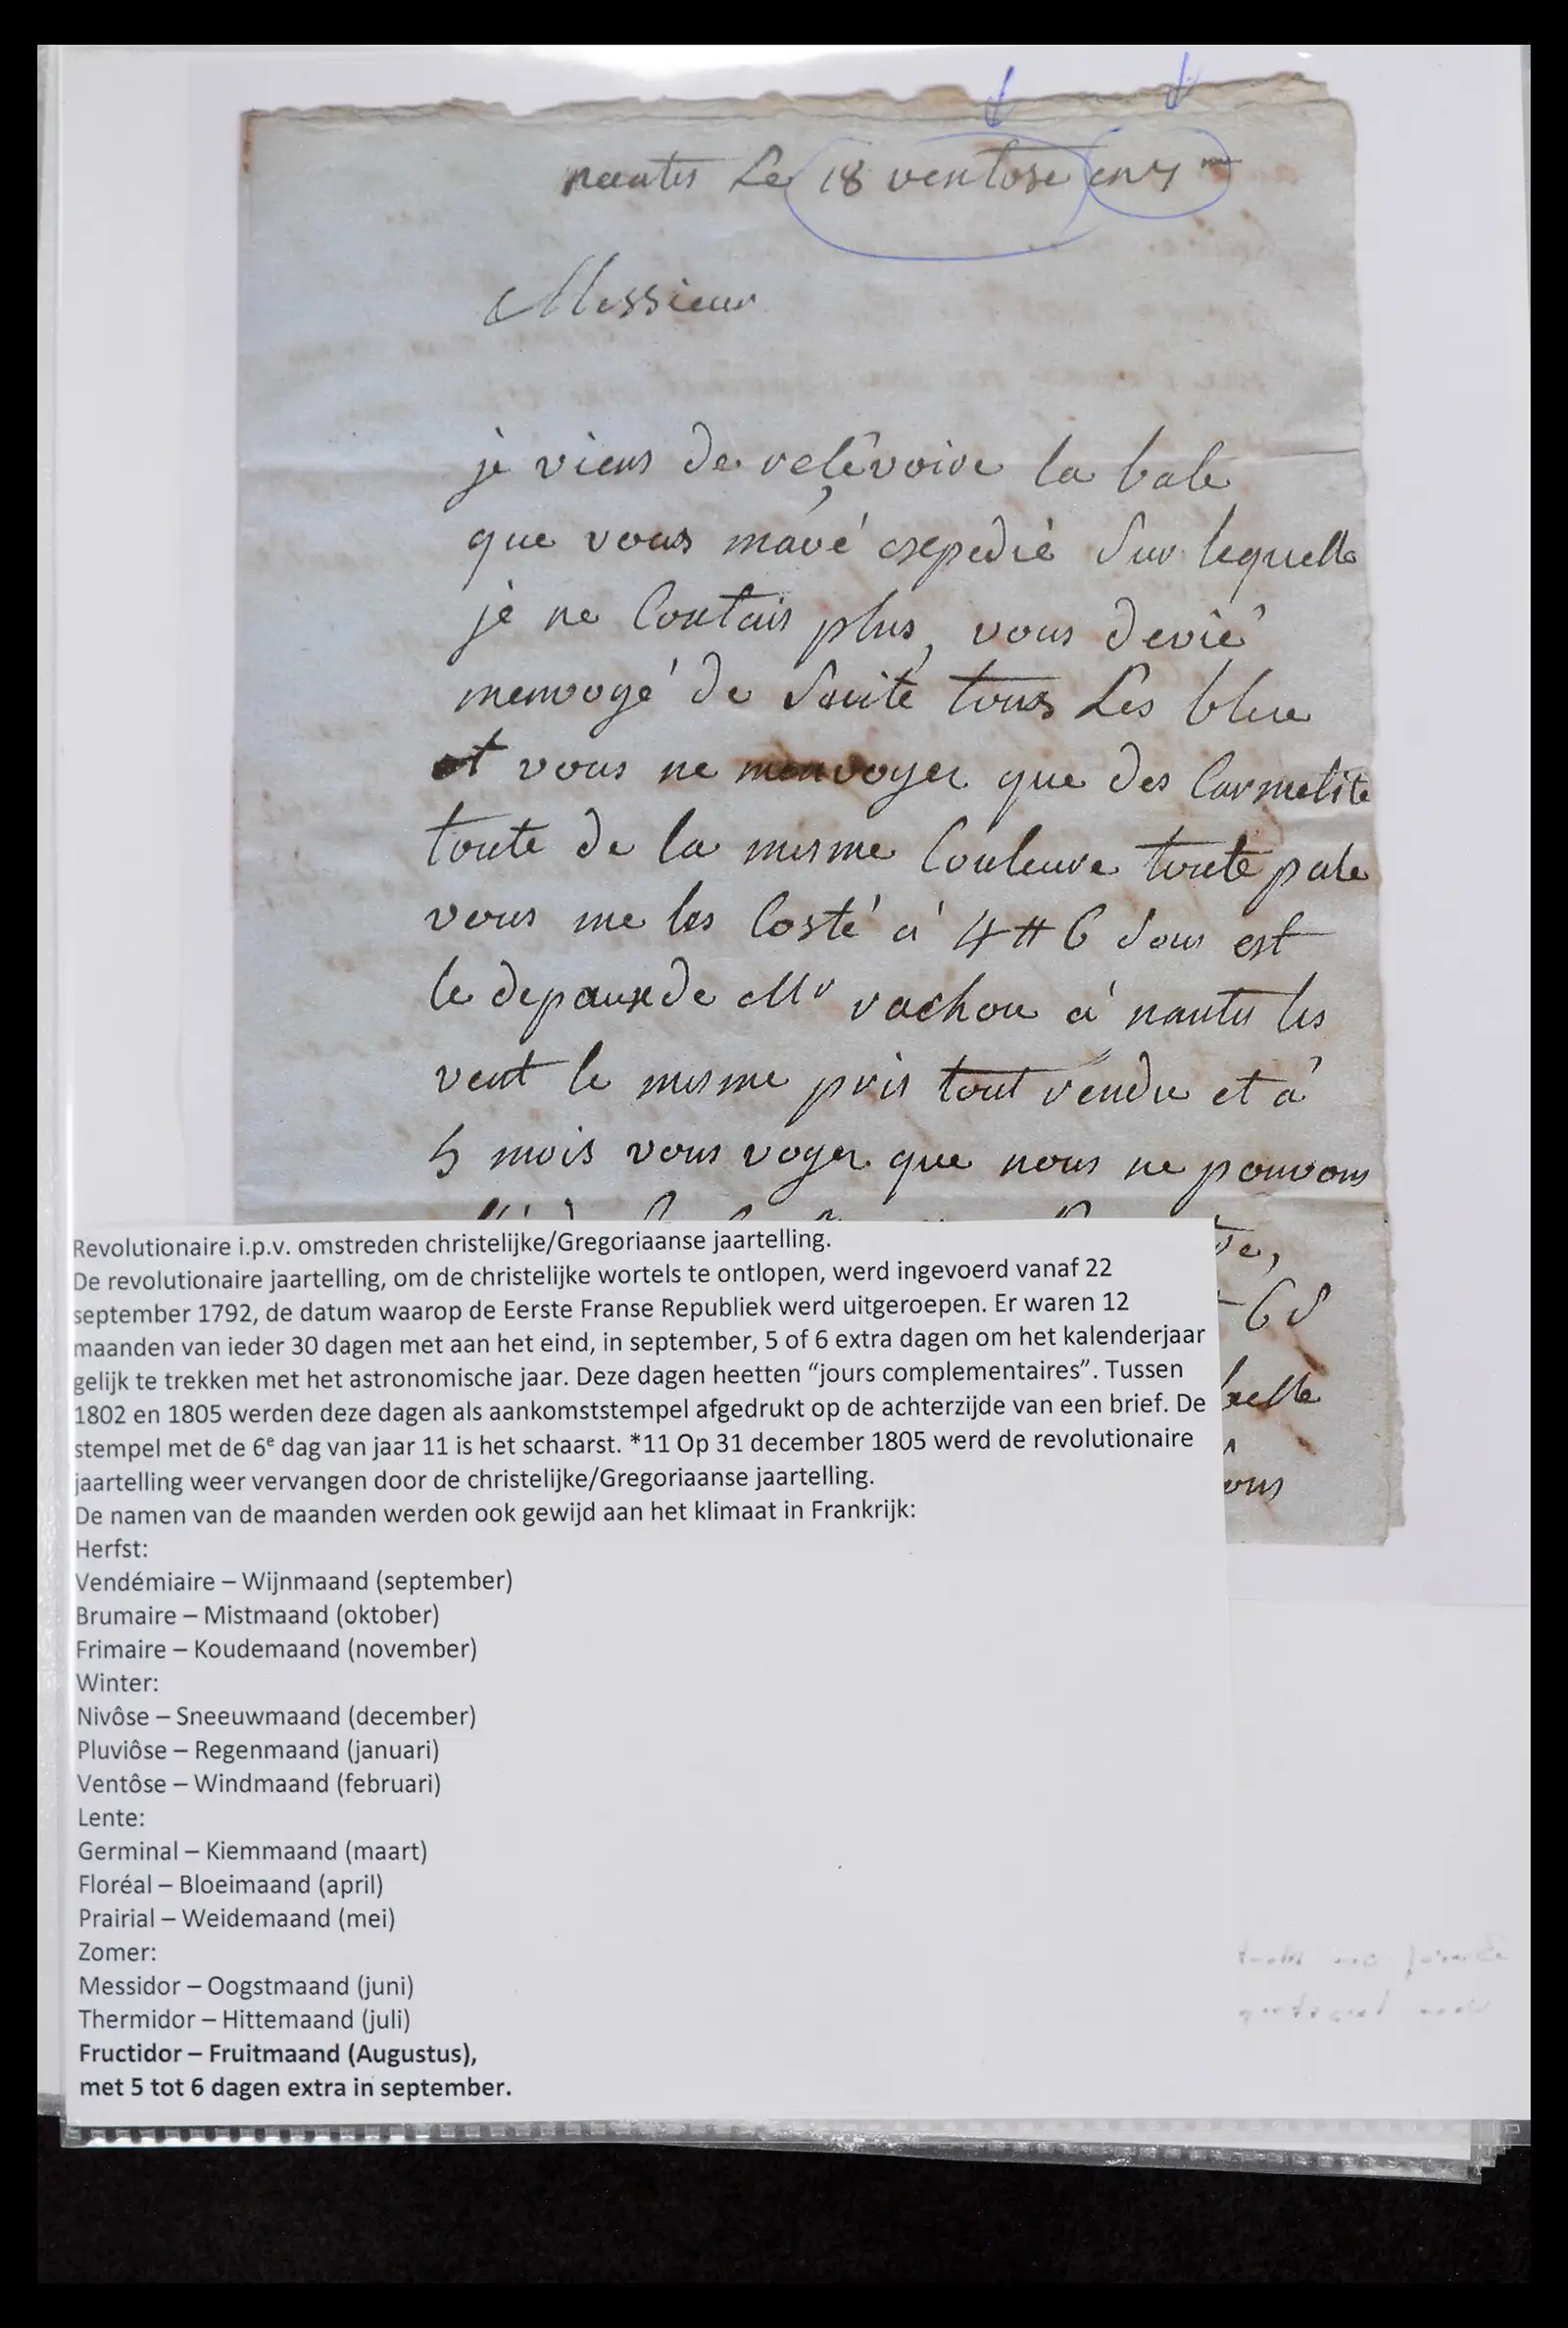 nantes Le 18 ventose en 7 me
Messieur
je viens de reçêvoire la bale
que vous mavé exepedié sur lequelle
je ne Contais plus, vous devié
menvoyé de Suite tous Les bleu
et vous ne menvoyer que des Carmelite
toute de la mesme Couleure toute pale
vous me les Costé à 4 ⧺ 6 Sous est
le depaux de Mr vachon à nantes les
vent le mesme pris tout vendu et à
5 mois vous voyer que nous ne pouvons
6 S
ous
Revolutionaire i.p.v. omstreden christelijke/Gregoriaanse jaartelling.
De revolutionaire jaartelling, om de christelijke wortels te ontlopen, werd ingevoerd vanaf 22
september 1792, de datum waarop de Eerste Franse Republiek werd uitgeroepen. Er waren 12
maanden van ieder 30 dagen met aan het eind, in september, 5 of 6 extra dagen om het kalenderjaar
gelijk te trekken met het astronomische jaar. Deze dagen heetten “jours complementaires”. Tussen
1802 en 1805 werden deze dagen als aankomststempel afgedrukt op de achterzijde van een brief. De
stempel met de 6e dag van jaar 11 is het schaarst. *11 Op 31 december 1805 werd de revolutionaire
jaartelling weer vervangen door de christelijke/Gregoriaanse jaartelling.
De namen van de maanden werden ook gewijd aan het klimaat in Frankrijk:
Herfst:
Vendémiaire – Wijnmaand (september)
Brumaire – Mistmaand (oktober)
Frimaire – Koudemaand (november)
Winter:
Nivôse – Sneeuwmaand (december)
Pluviôse – Regenmaand (januari)
Ventôse – Windmaand (februari)
Lente:
Germinal – Kiemmaand (maart)
Floréal – Bloeimaand (april)
Prairial – Weidemaand (mei)
Zomer:
Messidor – Oogstmaand (juni)
Thermidor – Hittemaand (juli)
Fructidor – Fruitmaand (Augustus),
met 5 tot 6 dagen extra in september.